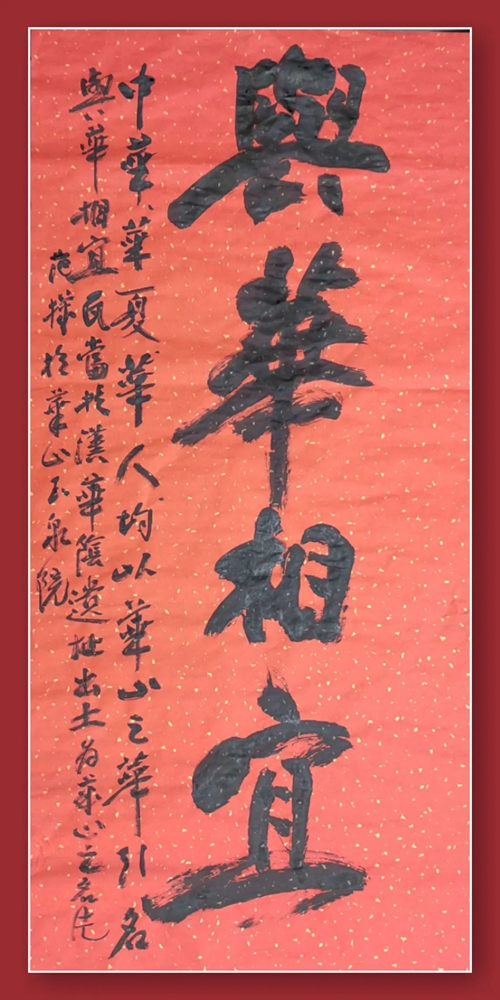 與華相宜
中華、華夏華人均以華山之華引名
與華相宜瓦當於漢華陰遺址出土為華山之名先
範樺於華山玉泉院